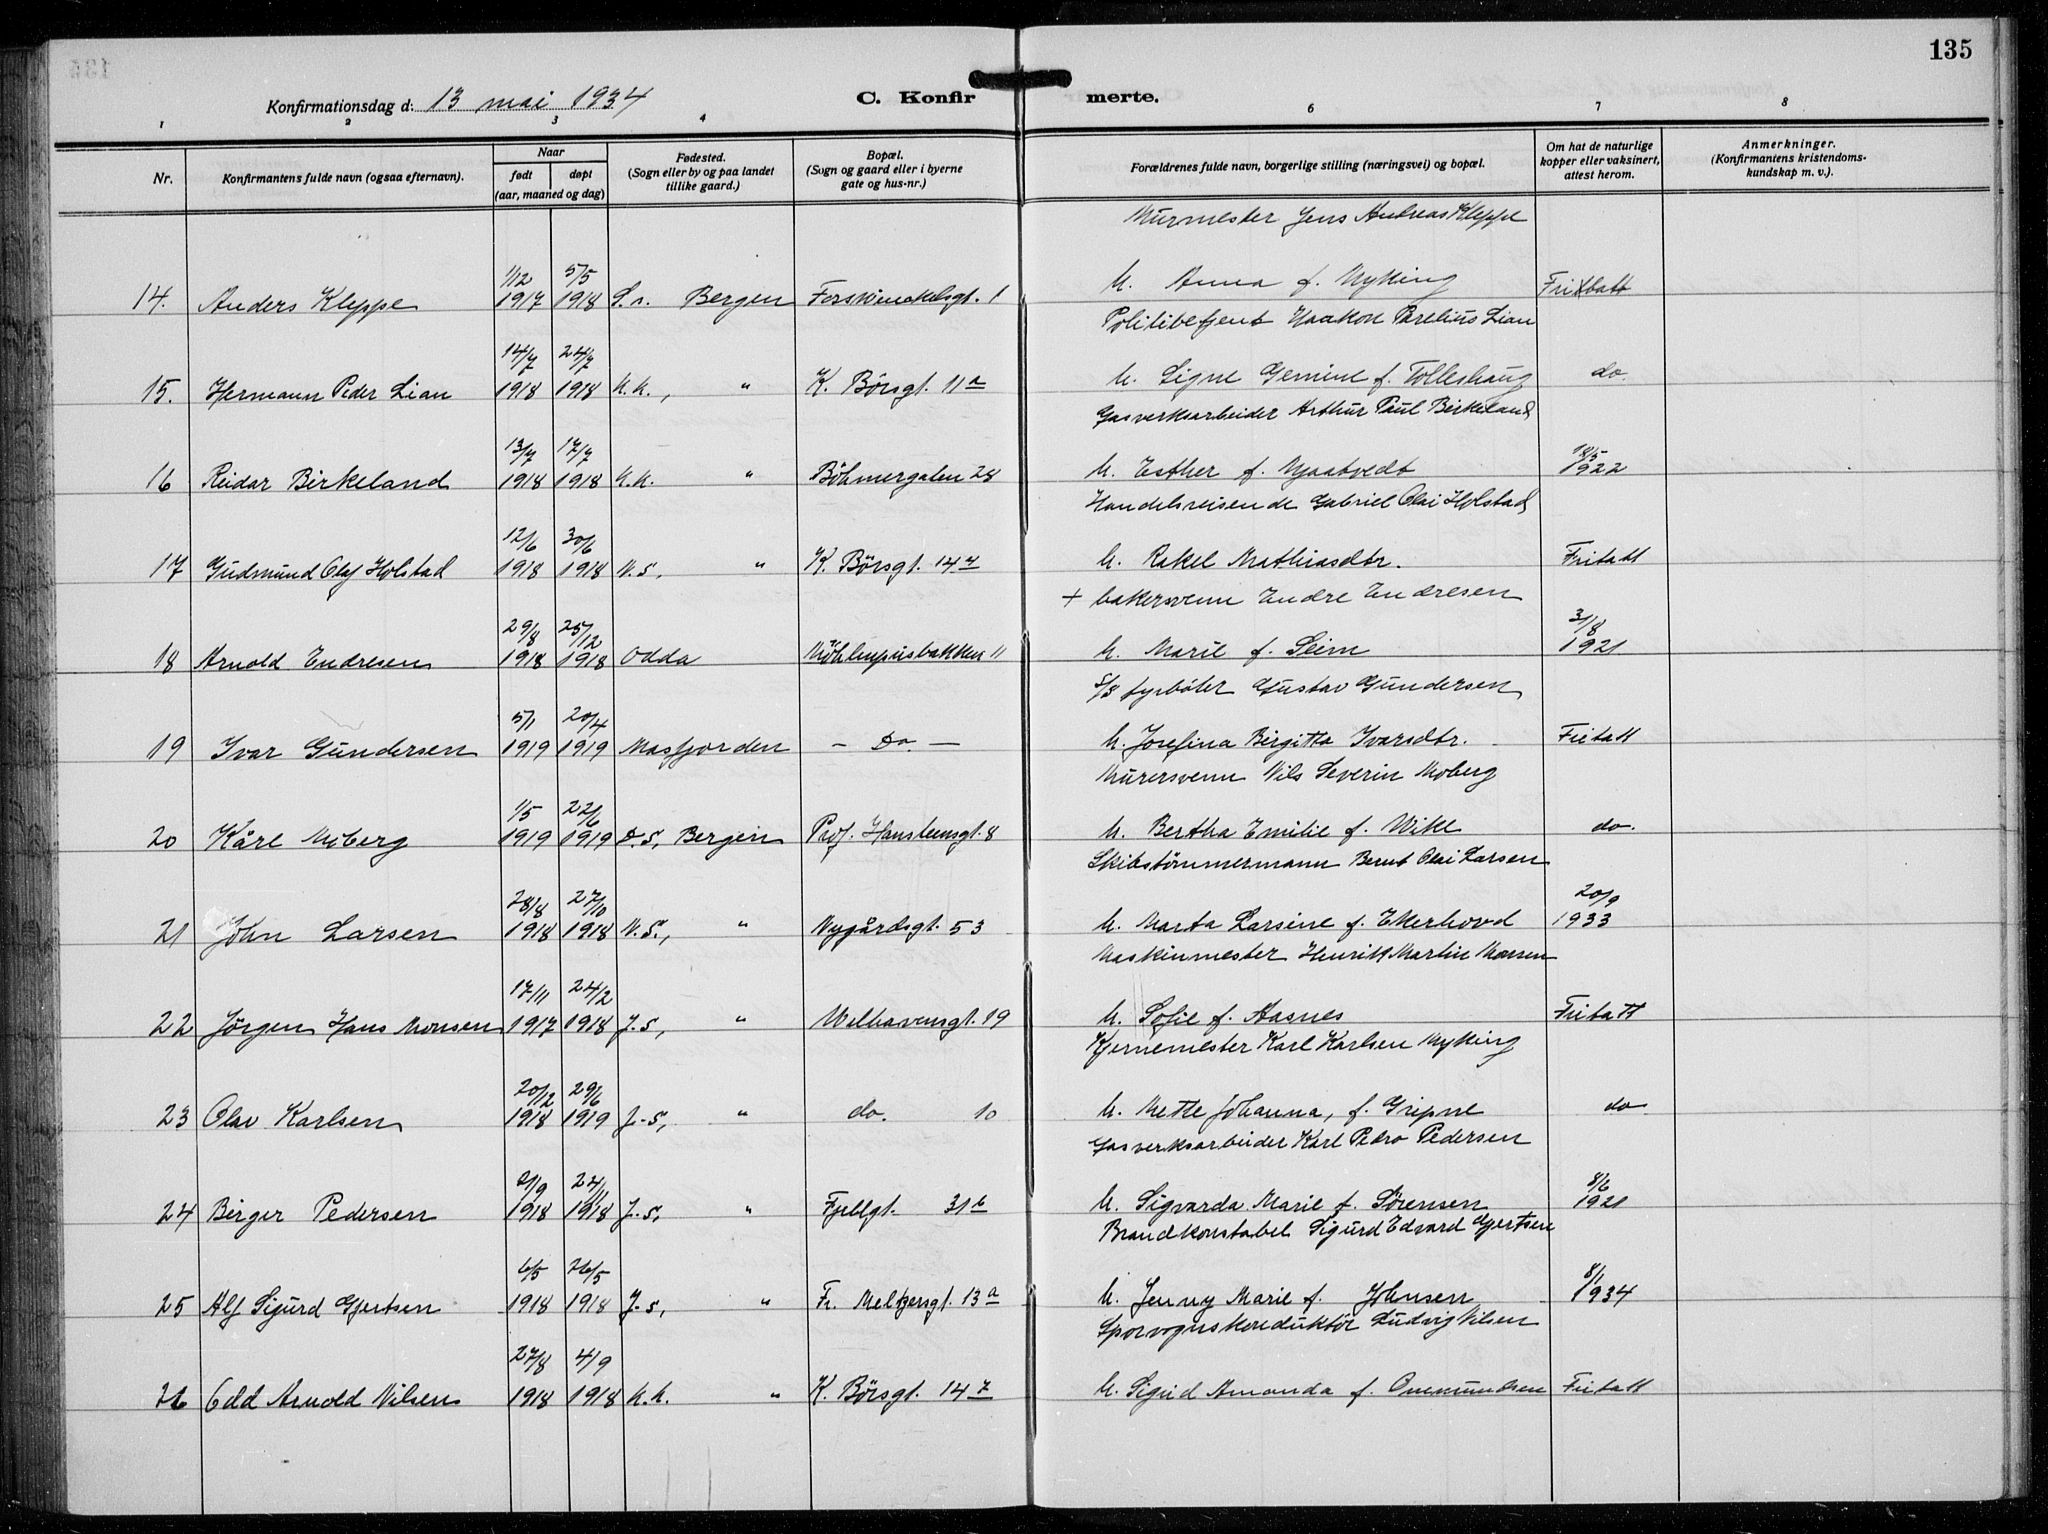 135
Konfirmationsdag d: 13 mai 1934
C. Konfir merte.
1 2 3 4 6 7 8
Nr.
Konfirmantens fulde navn (ogsaa efternavn).
Naar
født døpt
(aar, maaned og dag)
Fødested.
(Sogn eller by og paa landet
tillike gaard.)
Bopæl.
(Sogn og gaard eller i byerne
gate og hus-nr.)
Forældrenes fulde navn, borgerlige stilling (næringsvei) og bopæl.
Om hat de naturlige
kopper eller vaksinert,
attest herom.
Anmerkninger.
(Konfirmantens kristendoms-
kundskap m. v.).
Murmester Jens Andreas Kleppe
1/12 5/5
14. Anders Kleppe 1917 1918 Bergen 1 h. Anna f. Myking Fritatt
Politibetjent Haakon Parelius Lian
14/7 24/7
15. Hermann Peder Lian 1918 1918 k.k., " K. Børsgt. 11a h. Signe Gemine f. Tolleshaug do.
Gasverksarbeider Arthur Paul Birkeland
13/7 17/7 18/5
16 Reidar Birkeland 1918 1918 k.k. " Bøhmergaten 28 h. Esther f. Njaatvedt 1922
Handelsreisende Gabriel Olai Holstad
12/6 30/6
17 Gudmund Olaf Holstad 1918 1918 N.S. " K. Børsgt. 14 h. Rakel Mathiasdtr. Fritatt
+ bakersvenn Endre Endresen
29/8 25/12 3/8
18 Arnold Endresen 1918 1918 Odda Møhlenprisbakken 11 h. Marie f. Seim 1921
S/S fyrbøter Gustav Gundersen
5/1 20/4
19 Ivar Gundersen 1919 1919 Masfjorden — Do. — h. Josefina Birgitta Ivarsdtr. Fritatt
Murersvenn Nils Severin Moberg
1/5 22/6
20 Kåre Moberg 1919 1919 D.S, Bergen Prof. Hansteensgt. 8 h. Bertha Emilie f. Wike do.
Skibstömmermann Bernt Olai Larsen
28/8 27/10 20/9
21 John Larsen 1918 1918 N.S., " Nygårdsgt. 53 h. Marta Larsine f. Ekerhovd 1933
Maskinmester Henrik Martin Monsen
17/11 24/2
22 Jörgen Hans Monsen 1917 1918 J.S, " Welhavensgt. 19 h. Sofie f. Aasnes Fritatt
Kjernemester Karl Karlsen Myking
20/12 29/6
23 Olav Karlsen 1918 1919 J.S, " do. 10 h. Mette Johanna, f. Gripne do
Gasverksarbeider Karl Pedro Pedersen
2/9 24/11 8/6
24 Birger Pedersen 1918 1918 J.S, " Fjellgt. 31b h. Sigvarda Marie f. Sörensen 1921
Brandkonstabel Sigurd Edvard Gjertsen
6/5 26/5 8/1
25 Alf Sigurd Gjertsen 1918 1918 J.S, " Fr. Meltzersgt. 13a h. Jenny Marie f. Johnsen 1934
Sporvognskonduktör Ludvig Nilsen
27/8 4/9
26 Odd Arnold Nilsen 1918 1918 k.k. " K. Børsgt. 14 h. Sigrid Amanda f. Ommundsen Fritatt